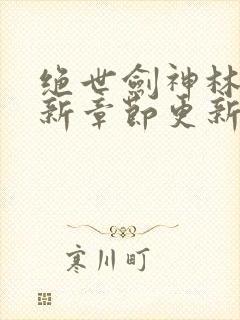 绝世劍神林
新章節更新
寒川町